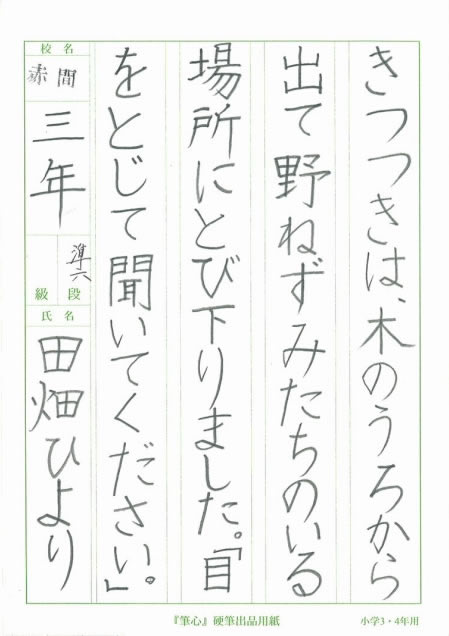 きつつきは、木のうろから
出て野ねずみたちのいる
場所にとび下りました。「目
をとじて聞いてください。」
校名
赤間
三年
準六
級段
氏名
田畑ひより
『筆心』硬筆出品用紙
小学3・4年用